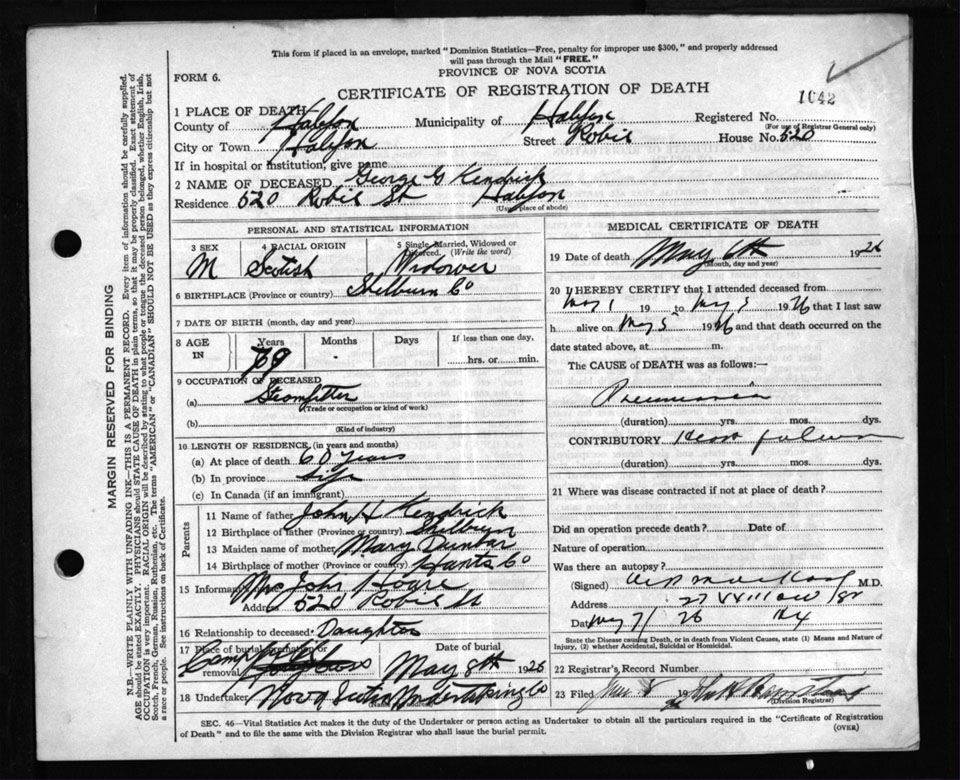 This form if placed in an envelope, marked "Dominion Statistics—Free, penalty for improper use $300," and properly addressed
will pass through the Mail "FREE."
PROVINCE OF NOVA SCOTIA
FORM 6.
CERTIFICATE OF REGISTRATION OF DEATH
1042
1 PLACE OF DEATH
County of Halifax Municipality of Halifax Registered No.
(For use of Registrar General only)
City or Town Halifax Street Robie House No. 520
If in hospital or institution, give name
2 NAME OF DECEASED George G Kendrick
Residence 520 Robie St Halifax
(Usual place of abode)
PERSONAL AND STATISTICAL INFORMATION
3 SEX 4 RACIAL ORIGIN 5 Single, Married, Widowed or Divorced. (Write the word)
M Scotish Widower
6 BIRTHPLACE (Province or country) Shelburn Co
7 DATE OF BIRTH (month, day and year)
8 AGE IN Years Months Days If less than one day,
79 hrs. or min.
9 OCCUPATION OF DECEASED
(a) Steamfitter
(Trade or occupation or kind of work)
(b)
(Kind of industry)
10 LENGTH OF RESIDENCE, (in years and months)
(a) At place of death 60 years
(b) In province Life
(c) In Canada (if an immigrant)
Parents
11 Name of father John H Kendrick
12 Birthplace of father (Province or country) Shelburn
13 Maiden name of mother Mary Dunbar
14 Birthplace of mother (Province or country) Hants Co
15 Informant Mrs John Hoare
Address 520 Robie St
16 Relationship to deceased Daughter
17 Place of burial, cremation or removal Date of burial
Camp Hill May 8th 1926
18 Undertaker Nova Scotia Undertaking Co
(Name and address)
MEDICAL CERTIFICATE OF DEATH
19 Date of death May 6th 1926
(Month, day and year)
20 I HEREBY CERTIFY that I attended deceased from
May 1 19 to May 5 1926 that I last saw
h alive on May 5 1926 and that death occurred on the
date stated above, at m.
The CAUSE of DEATH was as follows:—
Pneumonia
(duration) yrs. mos. dys.
CONTRIBUTORY Heart failure
(duration) yrs. mos. dys.
21 Where was disease contracted if not at place of death?
Did an operation precede death? Date of
Nature of operation
Was there an autopsy?
(Signed) M.D.
Address 27 Willow St
Date May 7/26
State the Disease causing Death, or in death from Violent Causes, state (1) Means and Nature of
Injury, (2) whether Accidental, Suicidal or Homicidal.
22 Registrar's Record Number
23 Filed 19
(Division Registrar)
SEC. 46—Vital Statistics Act makes it the duty of the Undertaker or person acting as Undertaker to obtain all the particulars required in the "Certificate of Registration
of Death" and to file the same with the Division Registrar who shall issue the burial permit.
(OVER)
MARGIN RESERVED FOR BINDING
N.B.—WRITE PLAINLY WITH UNFADING INK—THIS IS A PERMANENT RECORD. Every item of information should be carefully supplied.
AGE should be stated EXACTLY. PHYSICIANS should STATE CAUSE OF DEATH in plain terms, so that it may be properly classified. Exact statement of
OCCUPATION is very important. RACIAL ORIGIN will be described by stating to what people or tongue the deceased person belonged, whether English, Irish,
Scotch, French, German, Russian, Ruthenian, etc. The terms "AMERICAN" or "CANADIAN" SHOULD NOT BE USED as they express citizenship but not
a race or people. See instructions on back of Certificate.